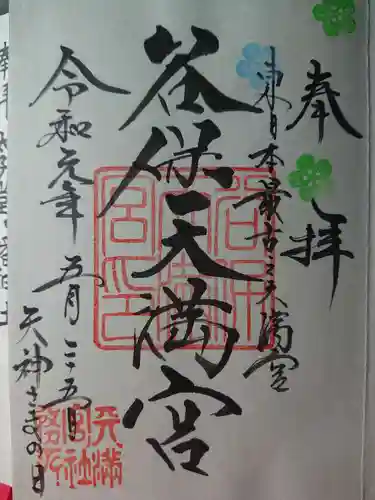 奉拝
東日本最古之天満宮
谷保天満宮
令和元年五月二十五日
天神さまの日
天満宮社務所